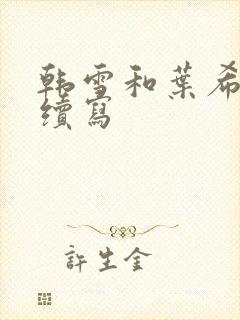 韩雪和葉希
續寫
許生金